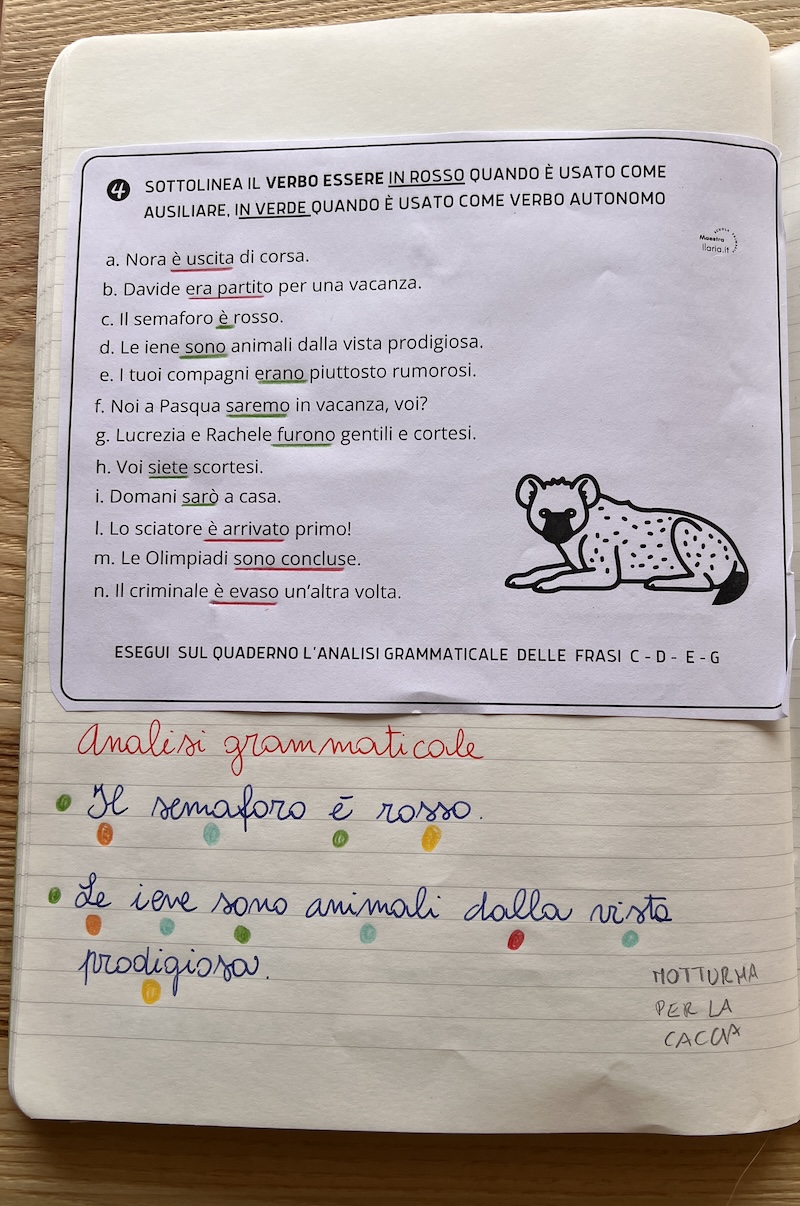 4 SOTTOLINEA IL VERBO ESSERE IN ROSSO QUANDO È USATO COME
AUSILIARE, IN VERDE QUANDO È USATO COME VERBO AUTONOMO
Maestra
Ilaria.it
a. Nora è uscita di corsa.
b. Davide era partito per una vacanza.
c. Il semaforo è rosso.
d. Le iene sono animali dalla vista prodigiosa.
e. I tuoi compagni erano piuttosto rumorosi.
f. Noi a Pasqua saremo in vacanza, voi?
g. Lucrezia e Rachele furono gentili e cortesi.
h. Voi siete scortesi.
i. Domani sarò a casa.
l. Lo sciatore è arrivato primo!
m. Le Olimpiadi sono concluse.
n. Il criminale è evaso un'altra volta.
ESEGUI SUL QUADERNO L'ANALISI GRAMMATICALE DELLE FRASI C - D - E - G
Analisi grammaticale
Il semaforo è rosso.
Le iene sono animali dalla vista
prodigiosa.
NOTTURNA
PER LA
CACCIA